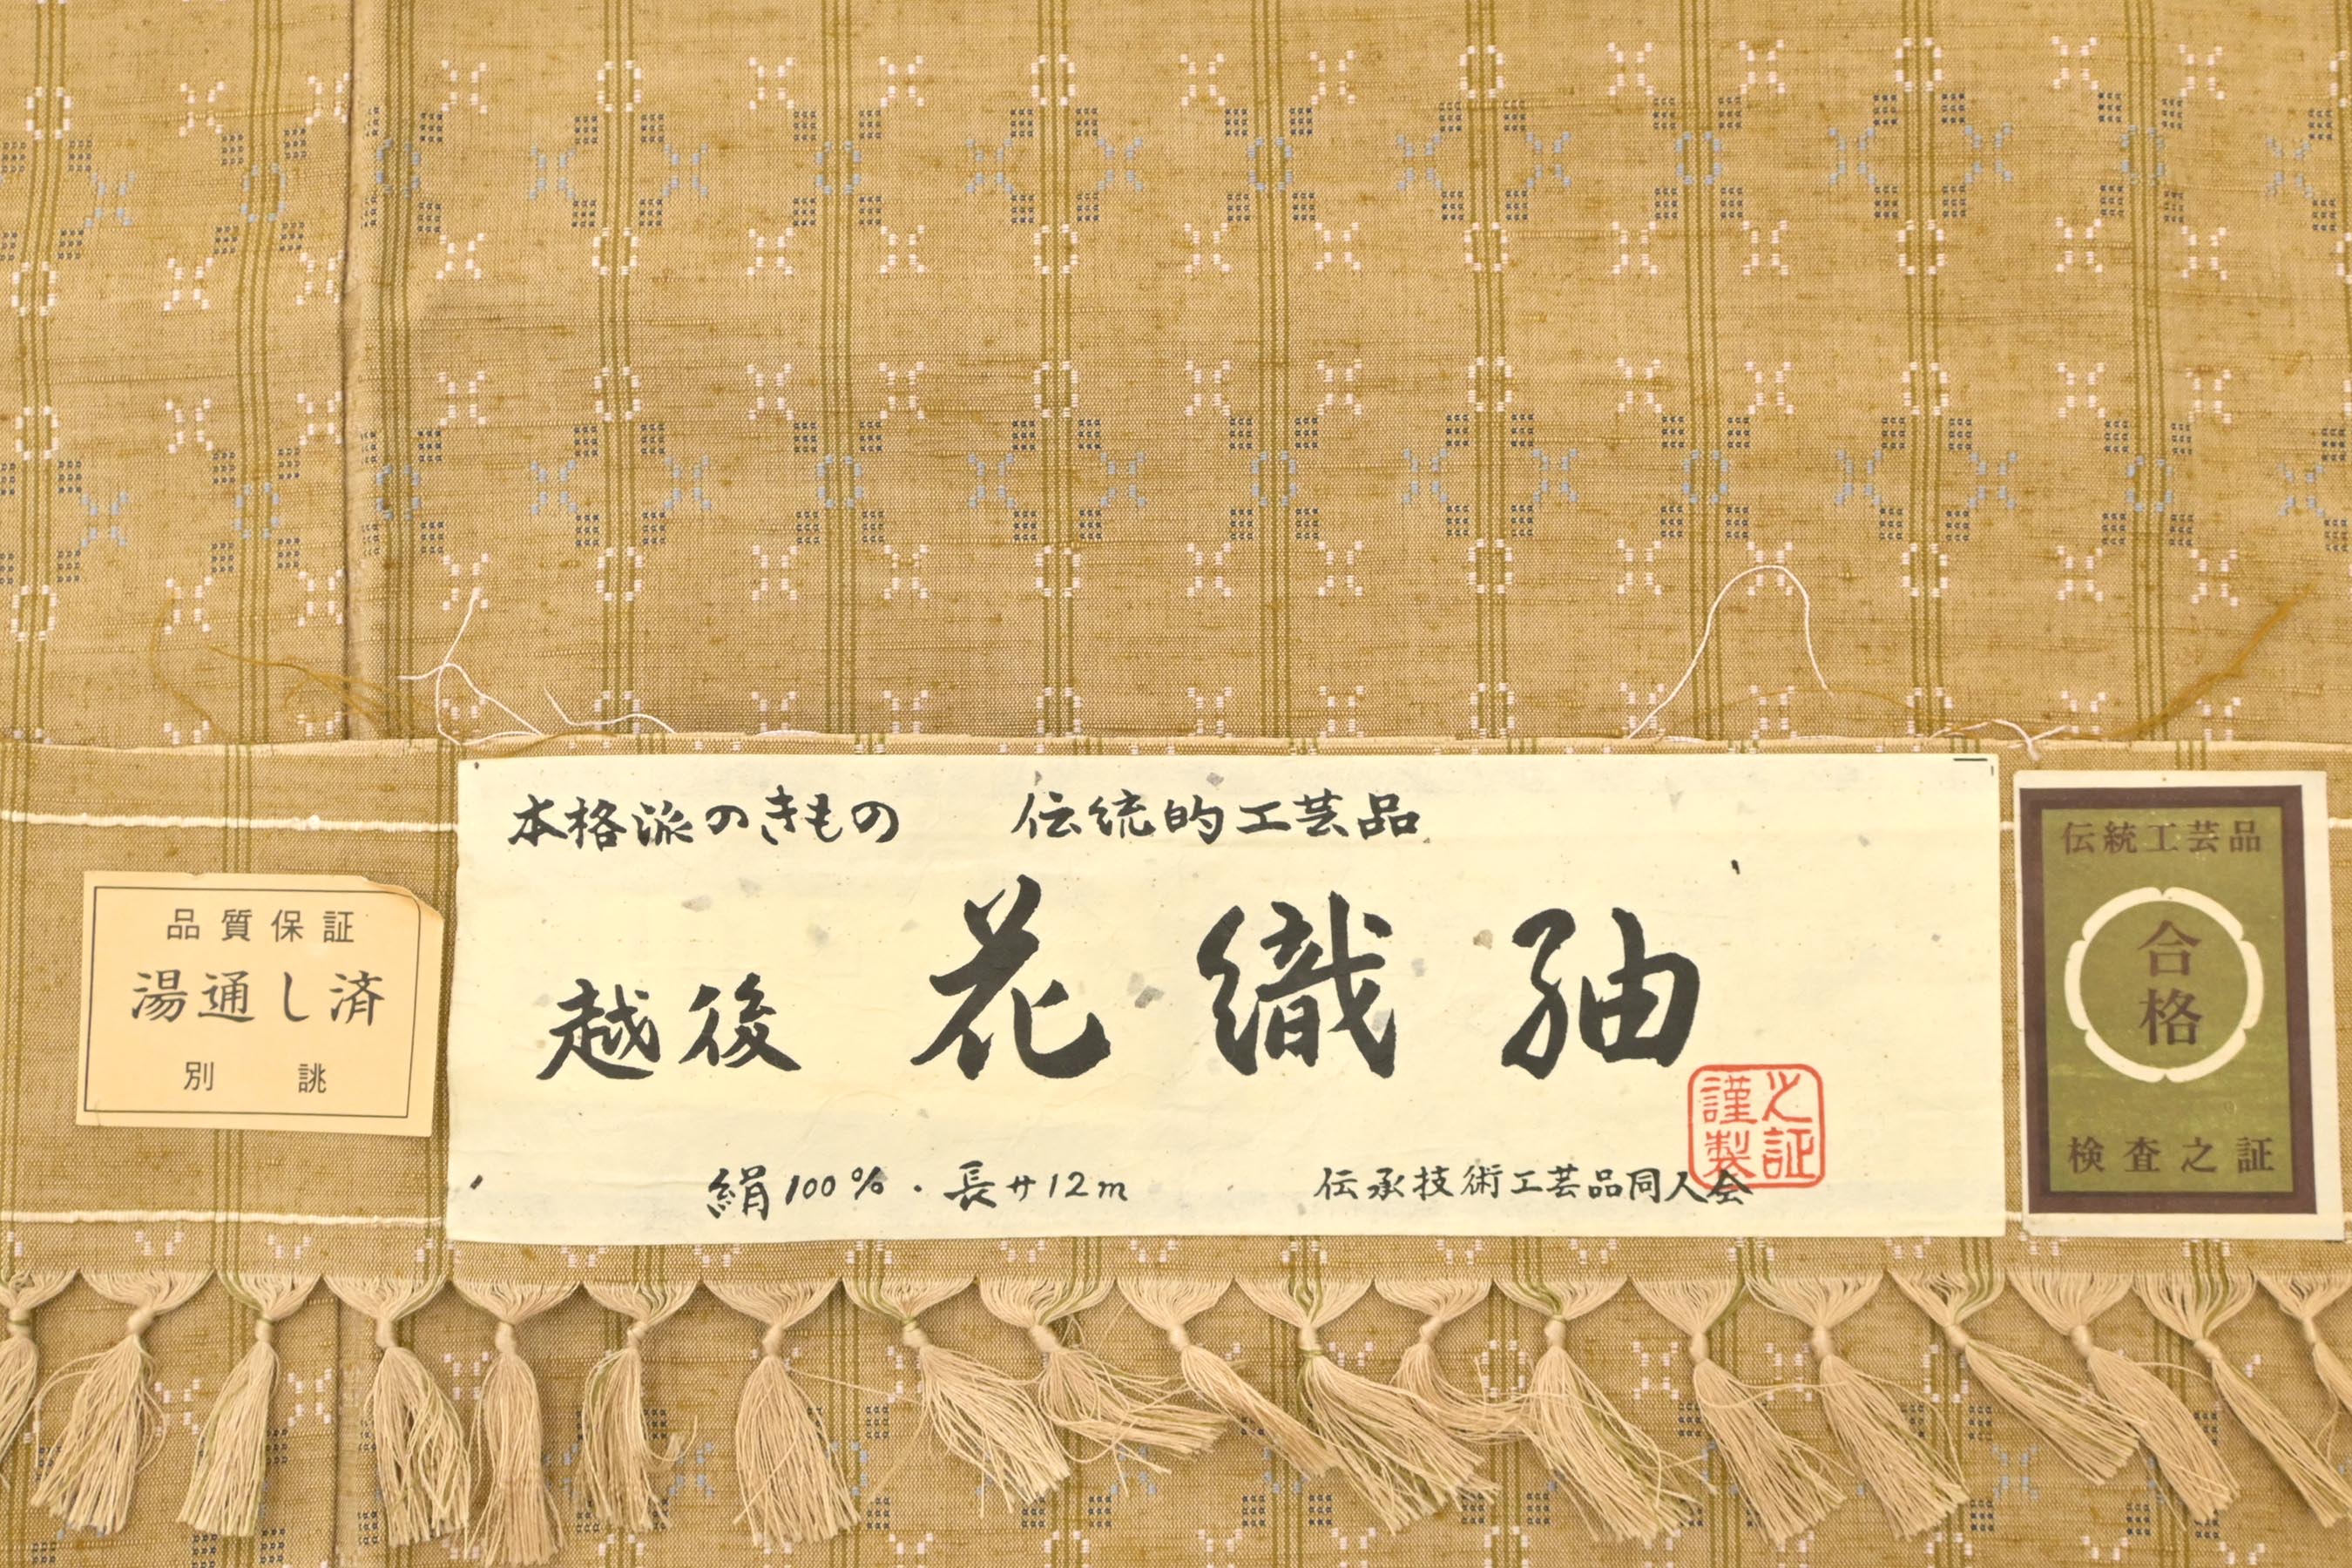 品質保証
湯通し済
別誂
本格派のきもの 伝統的工芸品
越後 花織紬
絹100%・長サ12m
伝承技術工芸品同人会
謹製之証
伝統工芸品
合格
検査之証